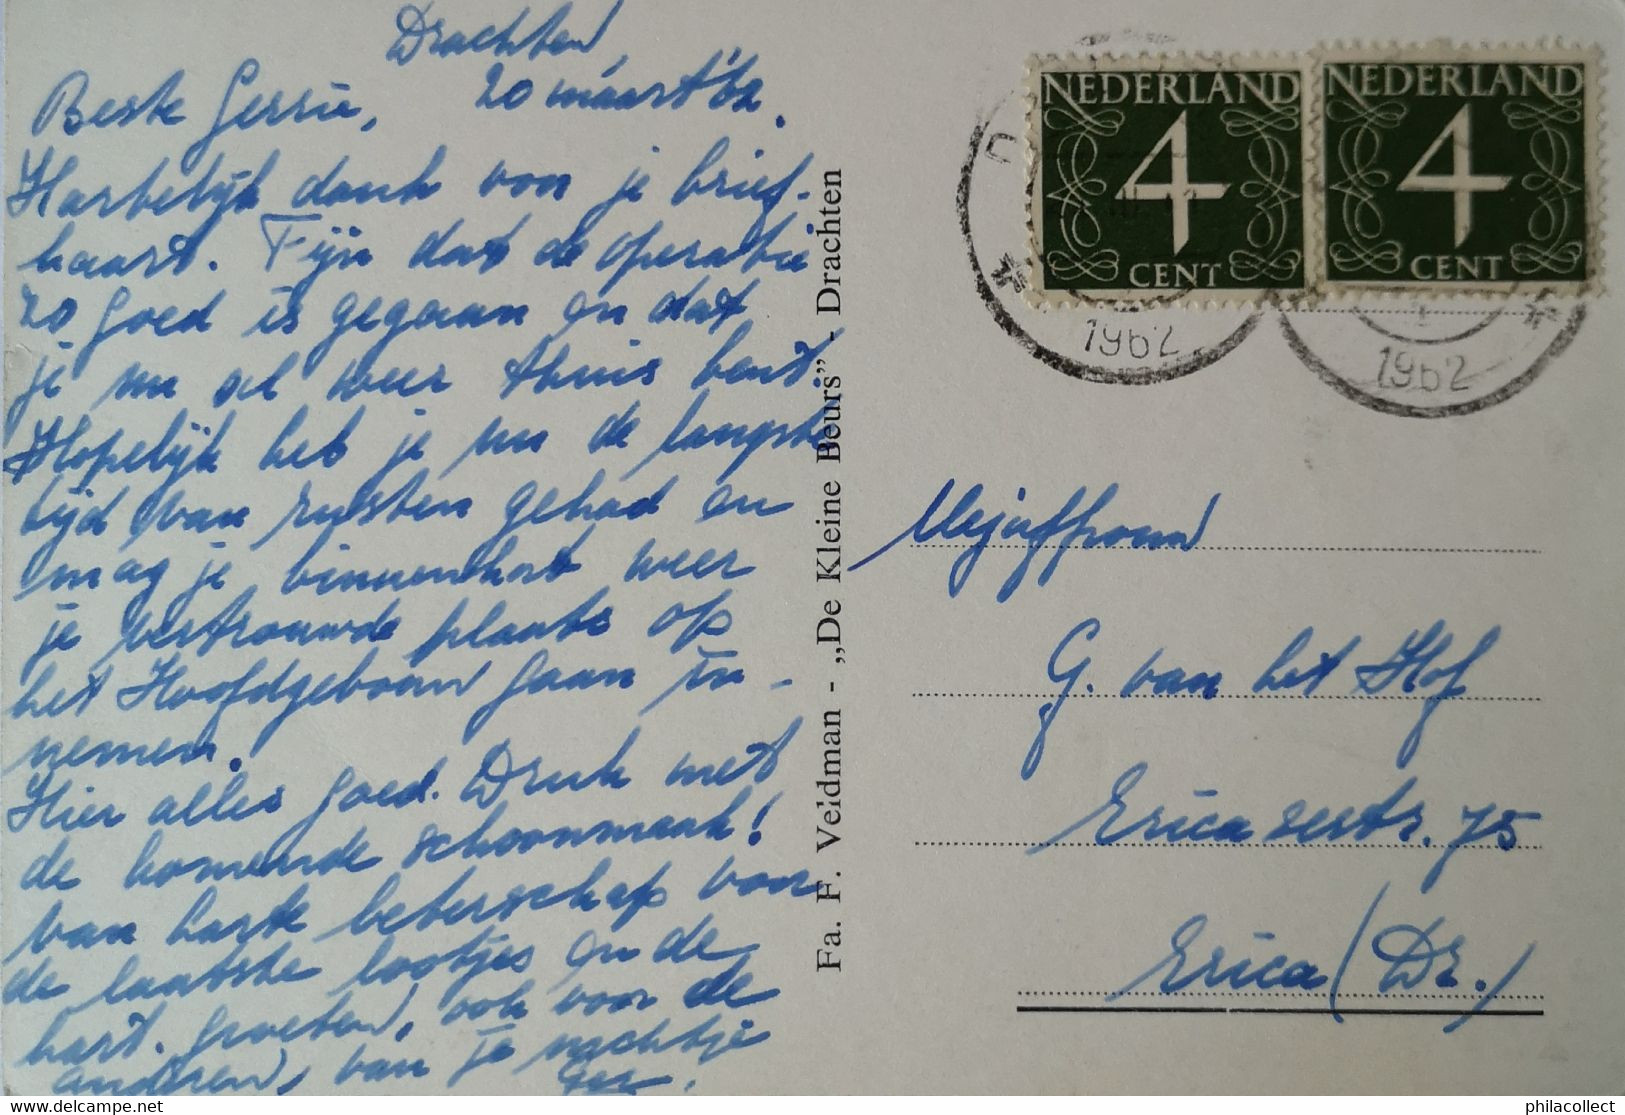 Drachten,
20 maart '62.
Beste Gerrie,
Hartelijk dank voor je brief-
kaart. Fijn dat de operatie
zo goed is gegaan en dat
je nu al weer thuis bent.
Hopelijk heb je nu de langste
tijd van rusten gehad en
mag je binnenkort weer
je vertrouwde plaats op
het Hoofdgebouw gaan in-
nemen.
Hier alles goed. Druk met
de komende schoonmaak!
van harte beterschap voor
de laatste loodjes en de
hart. groeten, ook voor de
anderen, van je nichtje
Fa. F. Veldman - „De Kleine Beurs” - Drachten
NEDERLAND
4
CENT
NEDERLAND
4
CENT
1962
1962
Mejuffrouw
G. van het Hof
Ericasestr. 75
Erica (Dr.)
philacollect